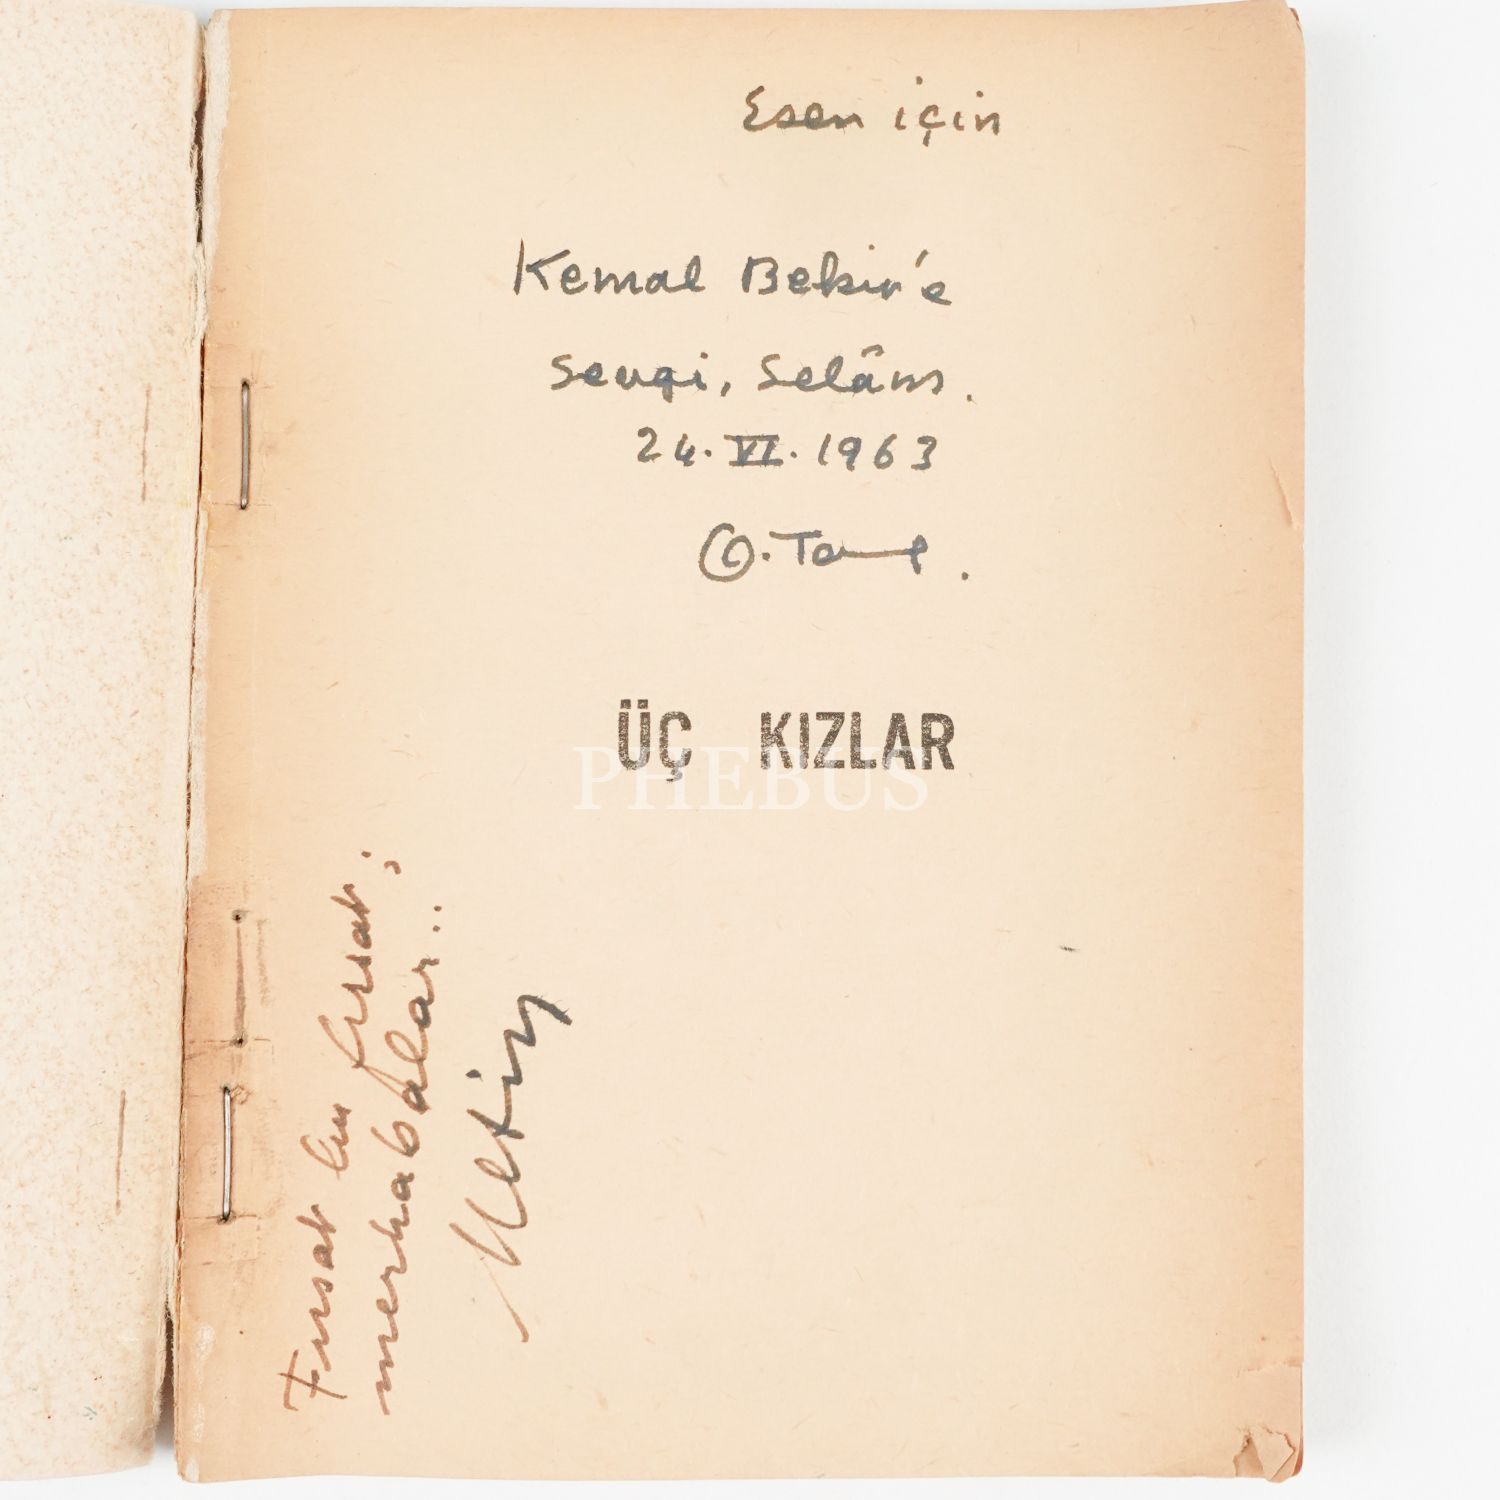 Esen için
Kemal Bekir'e
Sevgi, Selâm.
24.VI.1963
O.
ÜÇ KIZLAR
PHEBUS
Fırsat bu fırsat;
merhabalar..
Metin